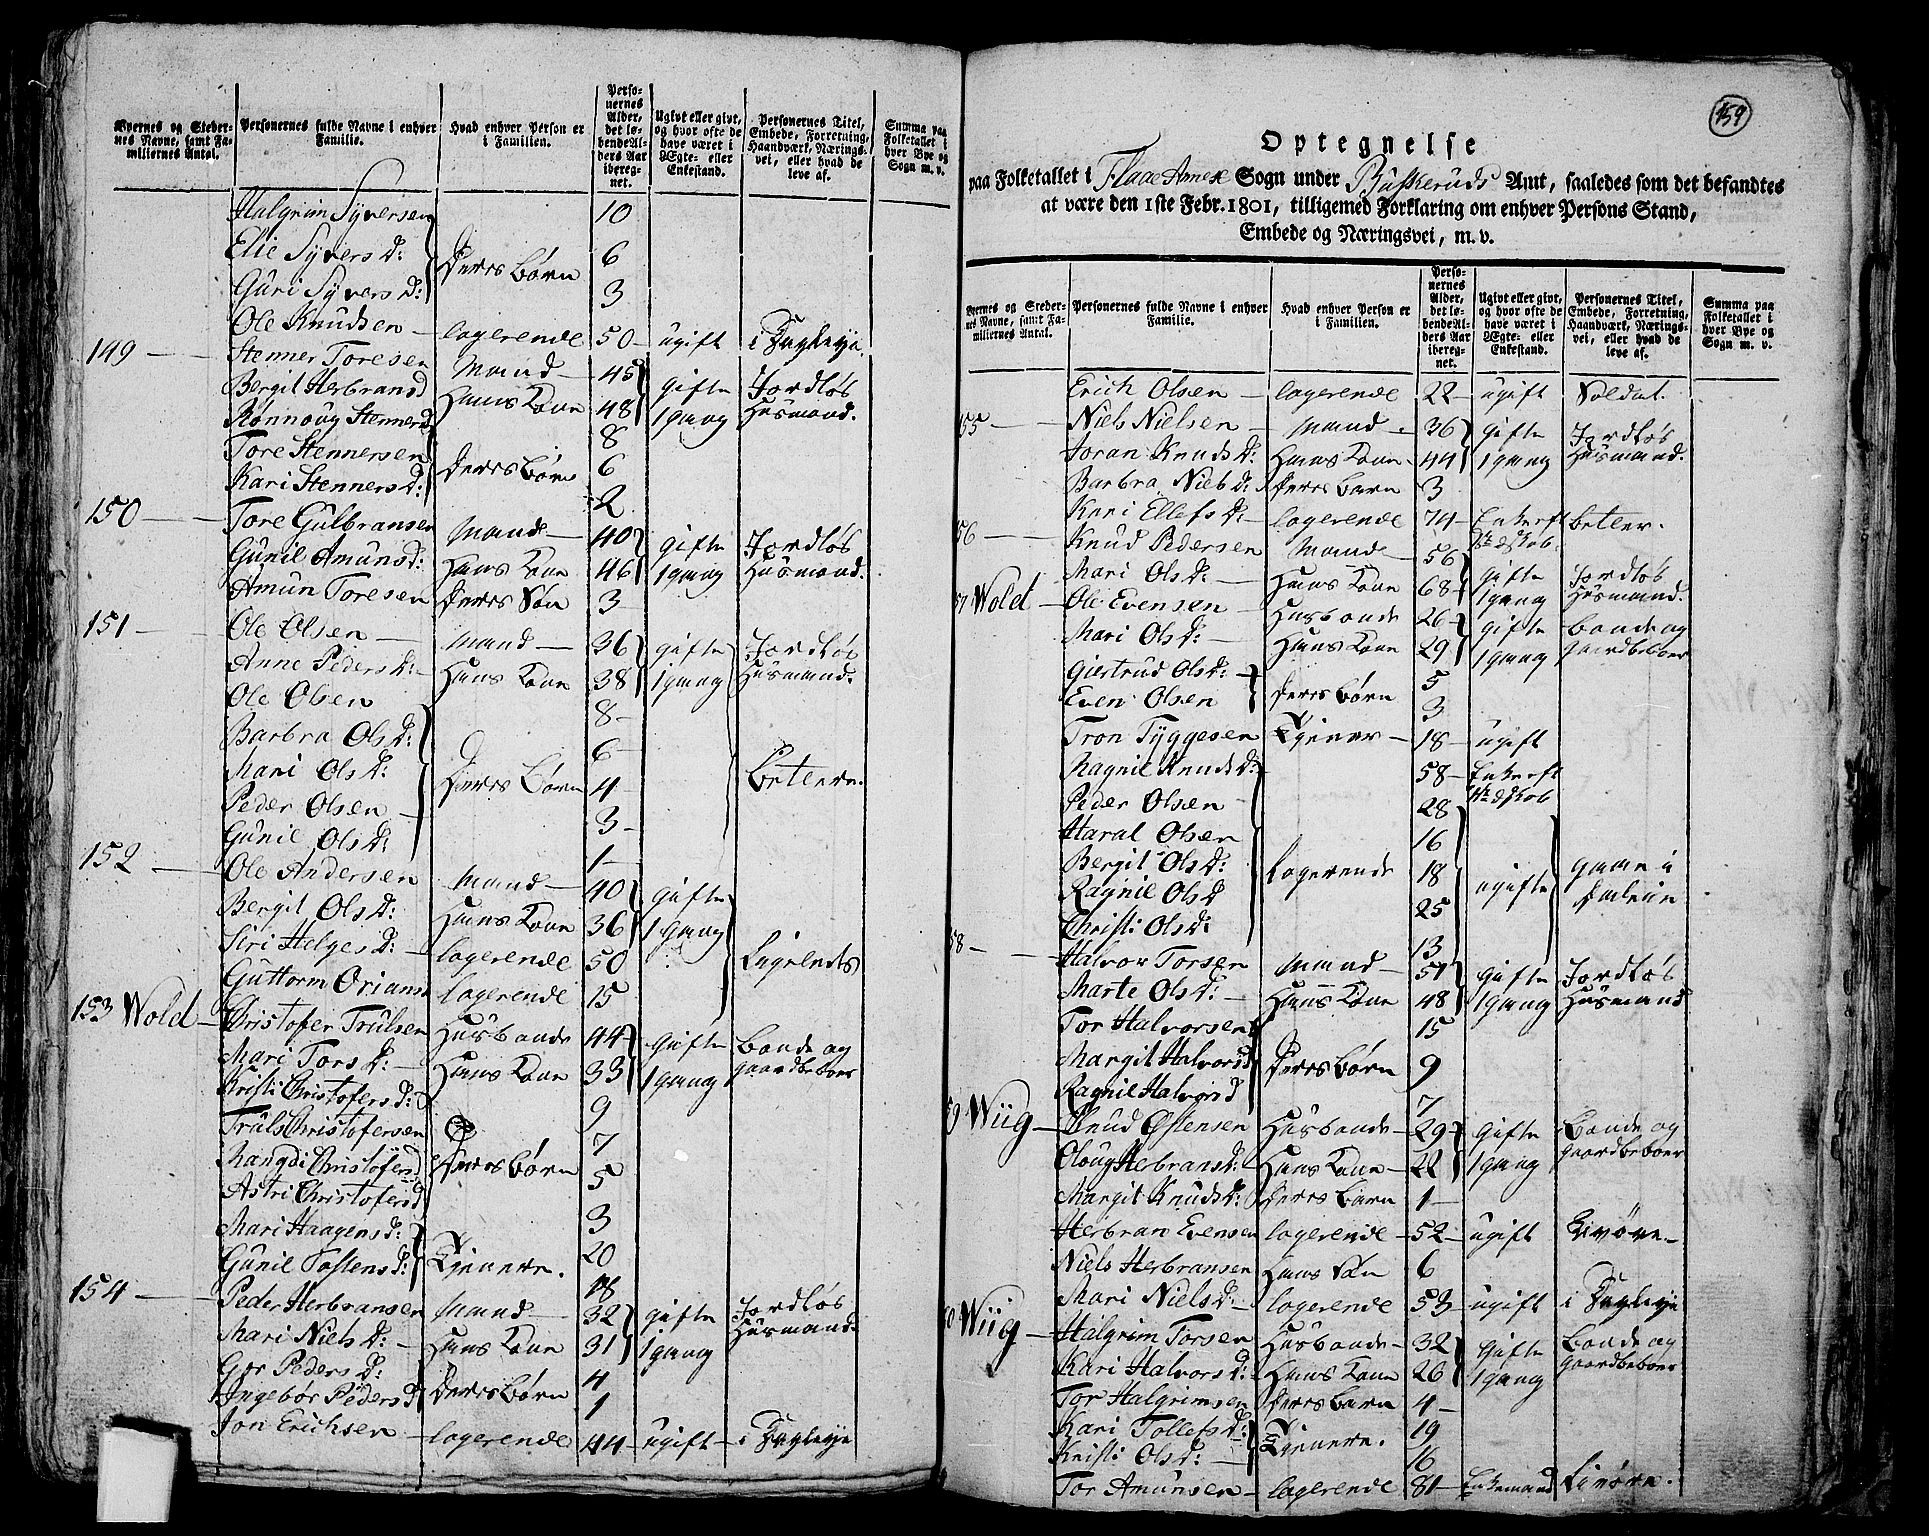 Byernes og Stedernes Navne, samt Familiernes Antal.
Personernes fulde Navne i enhver Familie.
Hvad enhver Person er i Familien.
Personernes Alder, det løbende Alders Aar iberegnet.
Ugivt eller givt, og hvor ofte de have været i Ægte- eller Enkestand.
Personernes Titel, Embede, Forretning, Haandværk, Næringsvei, eller hvad de leve af.
Summa paa Folketallet i hver Bye og Sogn m. v.
Halgrim Syversen 10
Elie Syversd: Deres Børn 6
Guri Syversd: 3
Ole Knudsen – logerende 50 – ugift i Dagleye.
149 – Stenner Toresen Mand – 45 gifte Jordløs
Bergit Herbransd Hans Kone 48 1 gang Husmand.
Rønnoug Stennersd 8
Tore Stennersen Deres Børn 6
Kari Stennersd: 2
150 – Tore Gulbransen Mand – 40 gifte Jordløs
Gunil Amunsd: Hans Kone 46 1 gang Husmand.
Amun Toresen Deres Søn 3 –
151 – Ole Olsen – Mand – 36 gifte Jordløs
Anne Pedersd: – Hans Kone 38 1 gang Husmand.
Ole Olsen 8 –
Barbra Olsd: 6 –
Mari Olsd: Deres Børn 4 – Betlere.
Peder Olsen – 3 –
Gunil Olsd: 1 –
152 – Ole Andersen Mand – 40 gifte
Bergit Olsd: Hans Kone 36 1 gang
Siri Helgesd: – logerende 50
Guttorm Orians logerende 15
153 Wold – Christofer Trulsen Husbonde 44 gifte Bonde og
Mari Torsd: – Hans Kone 33 1 gang gaardbeboer
Kristi Christofersd: 9
Truls Christofersen 7
Rangdi Christofersd Deres Børn 5
Astri Christofersd 3
Mari Haagensd: 20
Gunil Tostensd: Tjenere. 18
154 – Peder Herbransen Mand – 32 gifte Jordløs
Mari Nielsd: – Hans Kone 31 1 gang Husmand.
Gor Pedersd: 4
Ingebor Pedersd Deres Børn 1
Jon Erichsen – logerende 44 – ugift – i Dagleye
159
Optegnelse
paa Folketallet i Flaae Annex Sogn under Buskeruds Amt, saaledes som det befandtes
at være den 1ste Febr. 1801, tilligemed Forklaring om enhver Persons Stand,
Embede og Næringsvei, m. v.
Byernes og Stedernes Navne, samt Familiernes Antal.
Personernes fulde Navne i enhver Familie.
Hvad enhver Person er i Familien.
Personernes Alder, det løbende Alders Aar iberegnet.
Ugivt eller givt, og hvor ofte de have været i Ægte- eller Enkestand.
Personernes Titel, Embede, Forretning, Haandværk, Næringsvei, eller hvad de leve af.
Summa paa Folketallet i hver Bye og Sogn m. v.
Erich Olsen – logerende 22 – ugift Soldat.
55 – Niels Nielsen – Mand – 36 gifte Jordløs
Joran Knudsd: Hans Kone – 44 1 gang Husmand.
Barbra Nielsd: Deres barn 3
Kari Ellefsd: – logerende 74 – Enke eft. Betler.
56 – Knud Pedersen Mand – 56 gifte Jordløs
Mari Olsd: – Hans Kone 68 – 1 gang Husmand.
57 Wold – Ole Evensen – Husbonde 26 – gifte Bonde og
Mari Olsd: – Hans Kone 29 1 gang gaardbeboer
Giertrud Olsd: 5
Even Olsen Deres Børn 3
Tron Tyggesen Tjener – 18 – ugift
Ragnil Knudsd: 58 – Enke eft
Peder Olsen – 28
Haral Olsen 16
Bergit Olsd: logerende 18 ugifte gaar i
Ragnil Olsd 25
Christi Olsd: 13
58 – Halvor Torsen Mand – 57 gifte Jordløs
Marte Olsd: – Hans Kone 48 1 gang Husmand
Tor Halvorsen 15
Margit Halvorsd Deres Børn 9
Ragnil Halvorsd 7
59 Wiig – Knud Østensen Husbonde – 29 gifte Bonde og
Oloug Hebransd: Hans Kone – 22 1 gang gaardbeboer
Margit Knudsd: Deres Barn 1 –
Herbran Evensen logerende – 52 – ugift
Niels Herbransen Hans Søn 6
Mari Nielsd: – logerende – 53 – ugift i Dagleye
60 Wiig – Halgrim Torsen Husbonde – 32 gifte Bonde og
Kari Halvorsd: Hans Kone 26 1 gang gaardbeboer
Tor Halgrimsen Deres Barn 4 –
Kari Tollefsd: 19
Kristi Olsd: Tjenere. 16
Tor Amunsen – logerende 81 – Enkemand